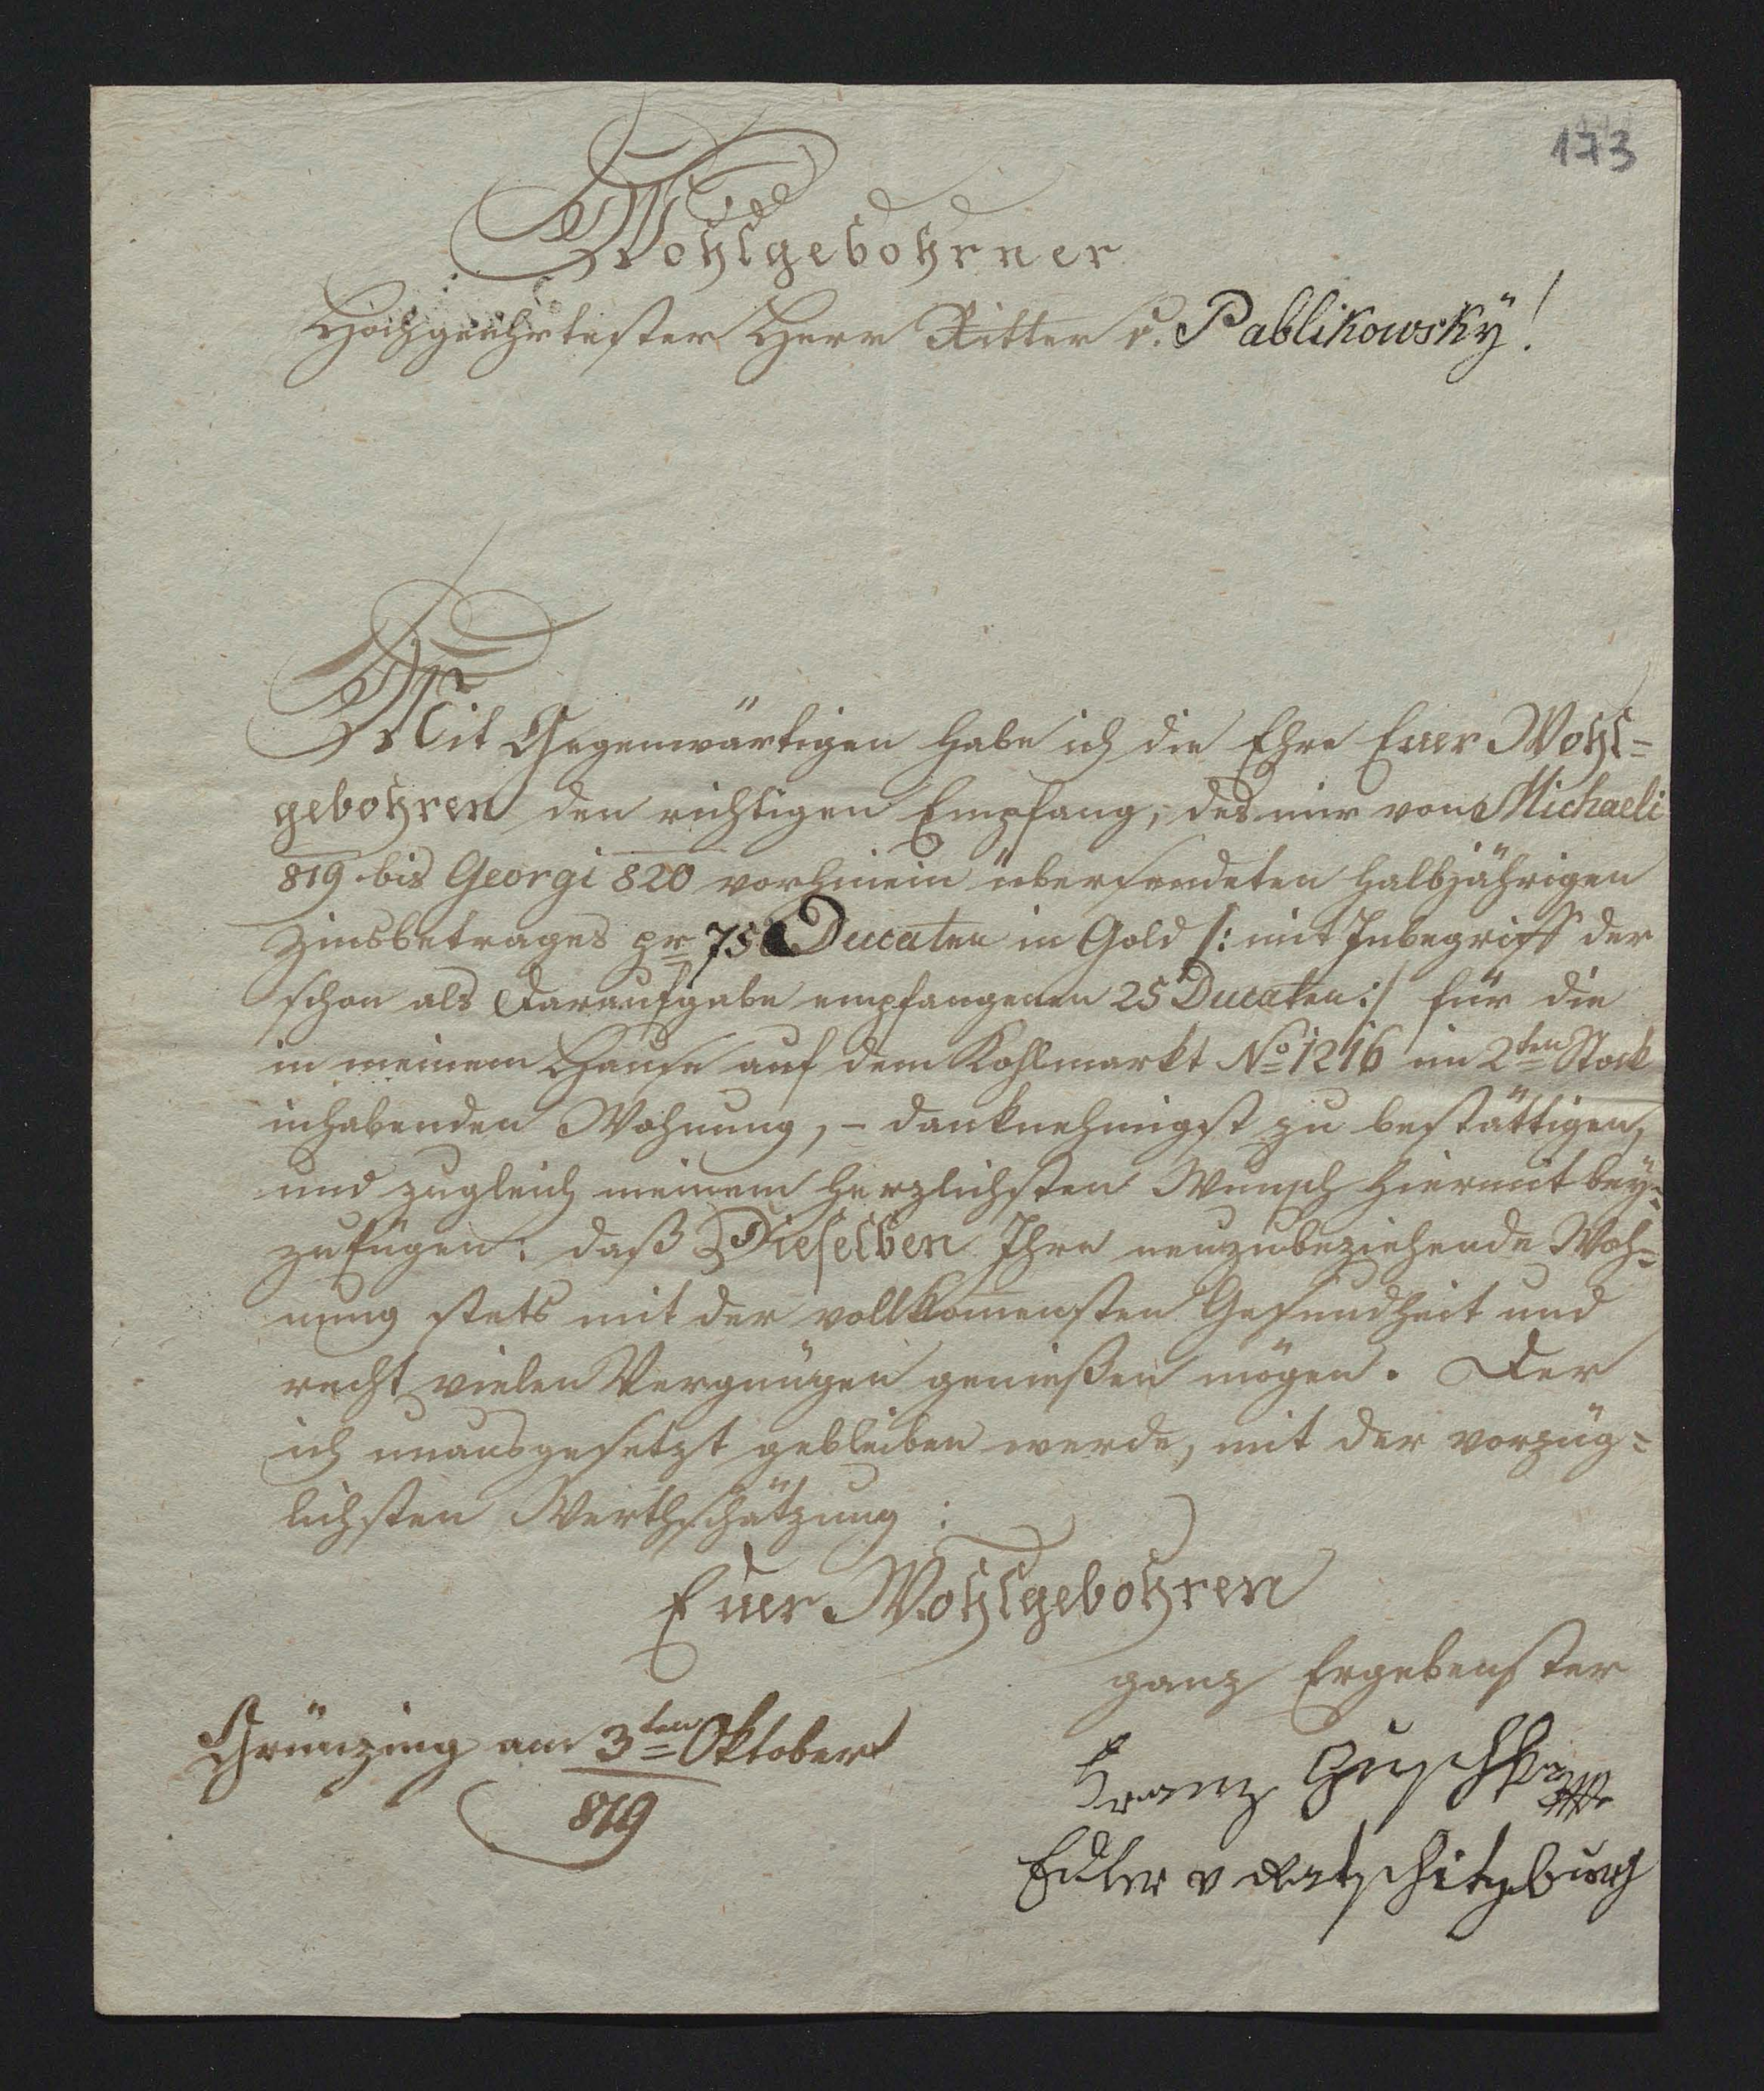 173
Wohlgebohrner
Hochgeehrtester Herr Ritter v. Pablikowskÿ!
Mit Gegenwärtigen habe ich die Ehre Euer Wohl=
gebohren den richtigen Empfang, des mir von Michaeli
819 bis Georgi 820 vorhinein übersendeten halbjährigen
Zinsbetrages pr 75 Ducaten in Gold /: mit Inbegriff der
schon als Daraufgabe empfangenen 25 Ducaten :/ für die
in meinem Hause auf dem Kohlmarkt No 1216 im 2ten Stock
inhabenden Wohnung, – danknehmigst zu bestättigen,
und zugleich meinem herzlichsten Wunsch hiermit bey=
zufügen: daß Dieselben Ihre neuzubeziehende Woh=
nung stets mit der vollkom̄ensten Gesundheit und
recht vielen Vergnügen genießen mögen. Der
ich unausgesetzt gebleiben werde, mit der vorzüg=
lichsten Werthschätzung:
Euer Wohlgebohren
ganz Ergebenster
Grünzing am 3ten Oktober
819
Franz
Edler v